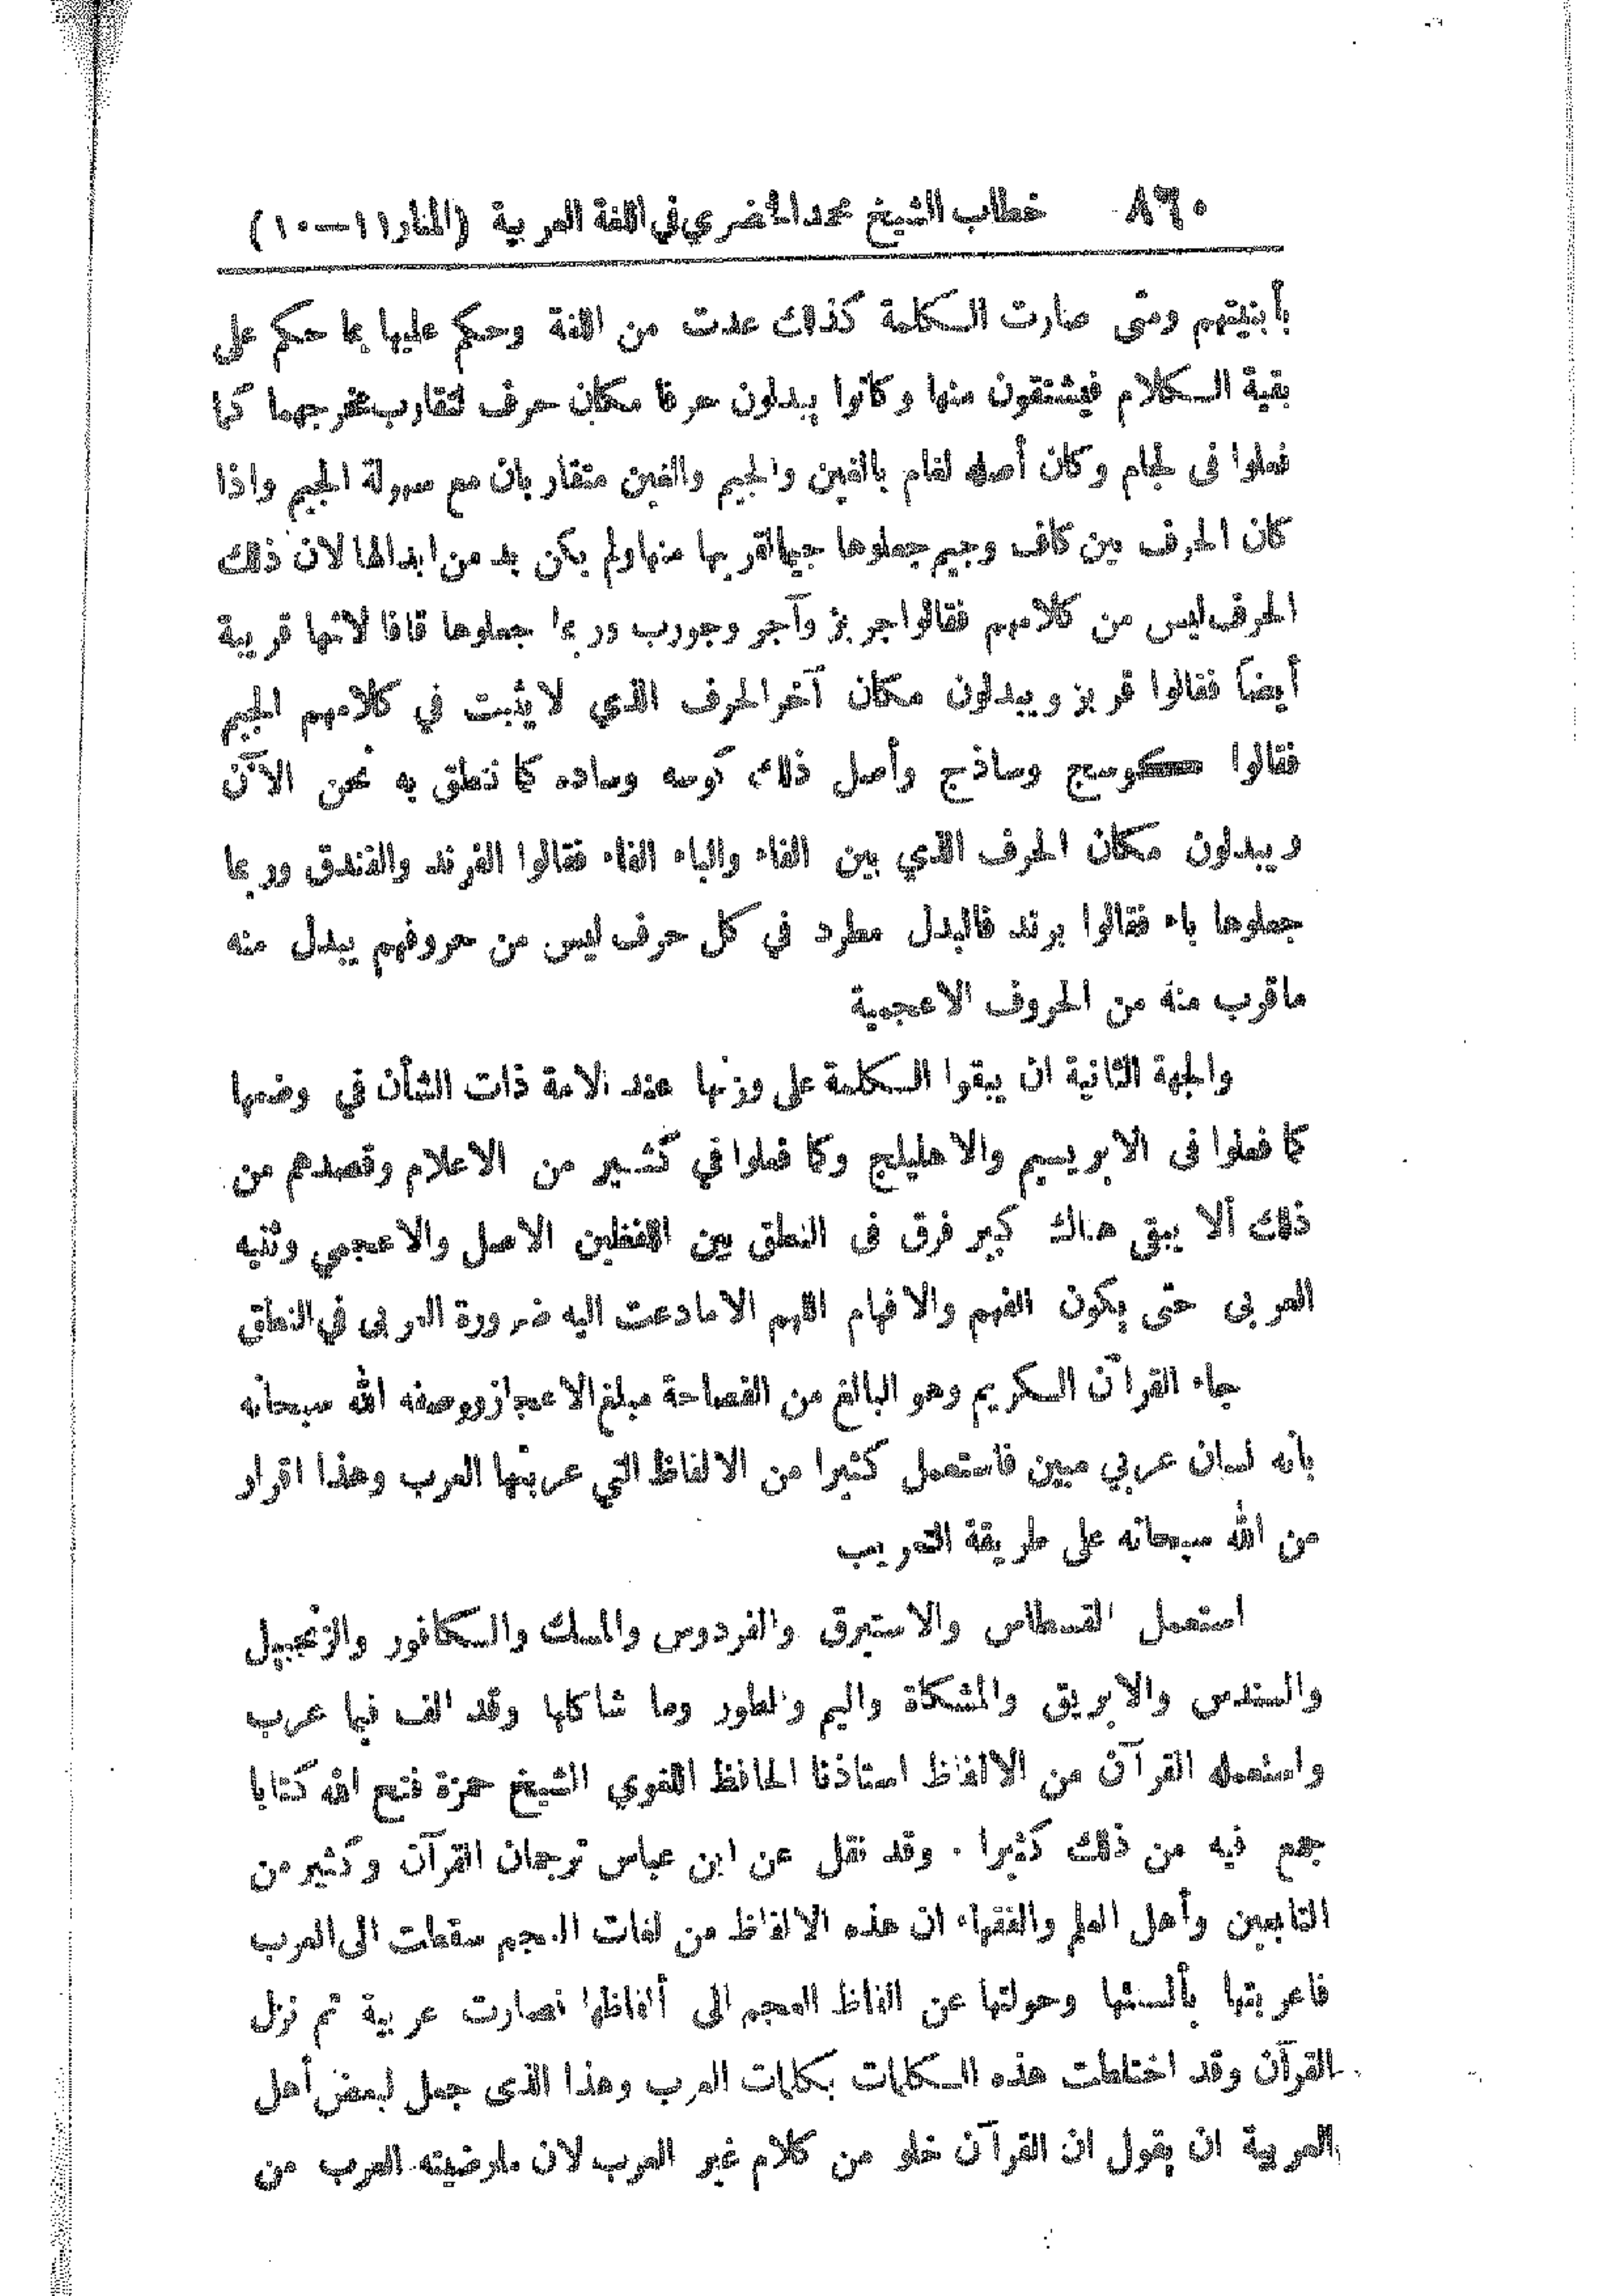 ٨٦٠ خطاب الشيخ محمد الخضري في اللغة العربية (المنار ١١—١٠)
بأبنيتهم ومتى صارت الكلمة كذلك عدت من اللغة وحكم عليها بما حكم على
بقية الكلام فيشتقون منها وكانوا يبدلون حرفا مكان حرف لتقارب مخرجهما كما
فعلوا فى لجام وكان أصله لغام بالغين والجيم والغين متقاربان مع سهولة الجيم واذا
كان الحرف بين كاف وجيم جعلوها جيما لقربها منها ولم يكن بد من ابدالها لان ذلك
الحرف ليس من كلامهم فقالوا جربز وآجر وجورب وربما جعلوها قافا لانها قريبة
أيضاً فقالوا قربز ويبدلون مكان آخر الحرف الذي لا يثبت في كلامهم الجيم
فقالوا كوسج وساذج وأصل ذلك كوسه وساده كما ننطق به نحن الآن
ويبدلون مكان الحرف الذي بين الفاء والباء الفاء فقالوا الفرند والفندق وربما
جعلوها باء فقالوا برند فالبدل مطرد في كل حرف ليس من حروفهم يبدل منه
ماقرب منه من الحروف الاعجمية
والجهة الثانية ان يبقوا الكلمة على وزنها عند الامة ذات الشأن في وضعها
كما فعلوا فى الابريسم والاهليلج وكما فعلوا في كثير من الاعلام وقصدهم من
ذلك ألا يبقى هناك كبير فرق فى النطق بين اللفظين الاصل والاعجمي وثنيه
العربى حتى يكون الفهم والافهام اللهم الا مادعت اليه ضرورة العربى في النطق
جاء القرآن الكريم وهو البالغ من الفصاحة مبلغ الاعجاز ووصفه الله سبحانه
بأنه لسان عربي مبين فاستعمل كثيرا من الالفاظ التي عربتها العرب وهذا اقرار
من الله سبحانه على طريقة التعريب
استعمل القسطاس والاستبرق والفردوس والمسك والكافور والزنجبيل
والسندس والابريق والمشكاة واليم والطور وما شاكلها وقد الف فيما عرب
واستعمله القرآن من الالفاظ استاذنا الحافظ اللغوي الشيخ حمزة فتح الله كتابا
جمع فيه من ذلك كثيرا . وقد نقل عن ابن عباس ترجمان القرآن وكثير من
التابعين وأهل العلم والفقهاء ان هذه الالفاظ من لغات العجم سقطت الى العرب
فاعربتها بألسنتها وحولتها عن الفاظ العجم الى ألفاظها فصارت عربية ثم نزل
القرآن وقد اختلطت هذه الكلمات بكلمات العرب وهذا الذى جعل لبعض أهل
العربية ان يقول ان القرآن خلو من كلام غير العرب لان مارضيته العرب من